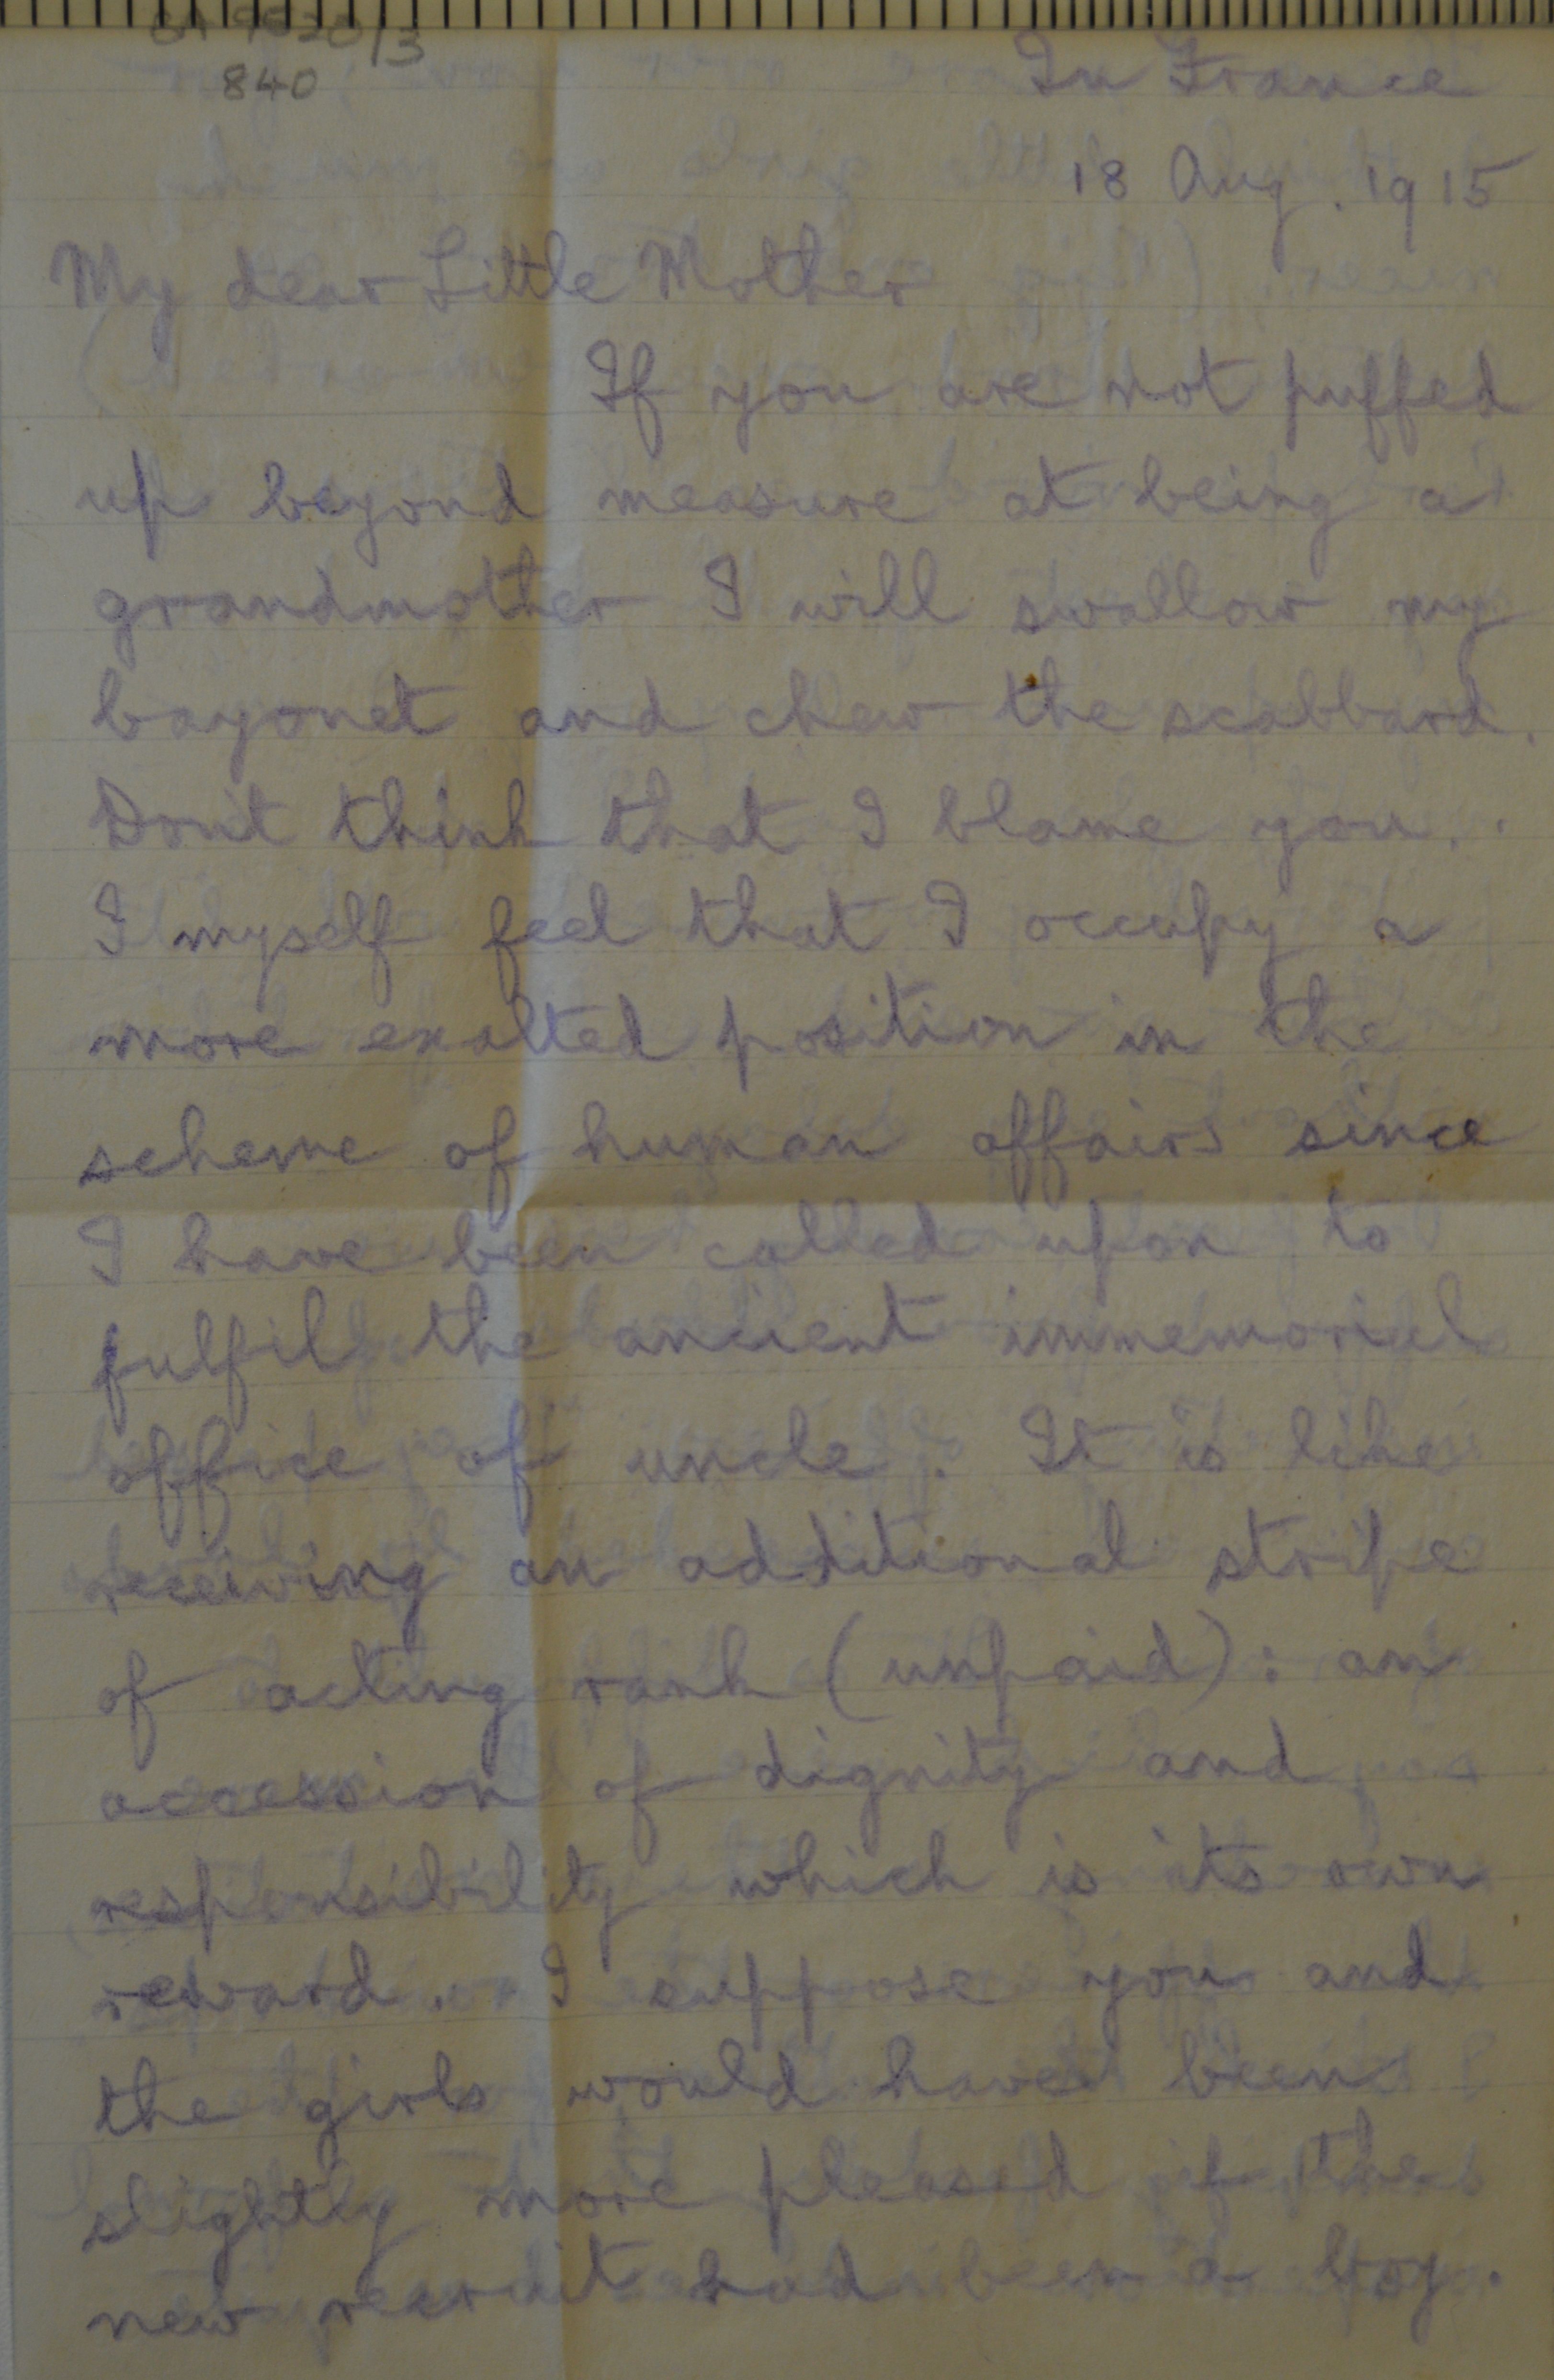 9520/3
840
In France
18 Aug. 1915
My dear Little Mother
If you are not puffed
up beyond measure at being a
grandmother I will swallow my
bayonet and chew the scabbard.
Don't think that I blame you.
I myself feel that I occupy a
more exalted position in the
scheme of human affairs since
I have been called upon to
fulfil the ancient immemorial
office of uncle. It is like
receiving an additional stripe
of acting rank (unpaid): an
accession of dignity and
responsibility which is its own
reward. I suppose you and
the girls would have been
slightly more pleased if the
new recruit had been a boy.